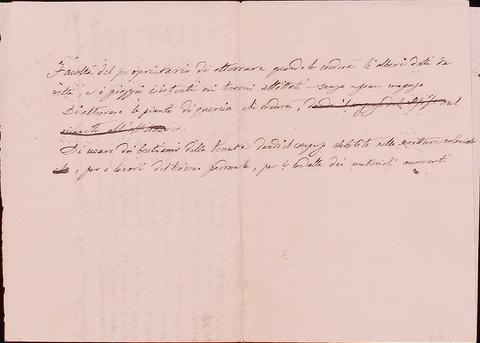 Facoltà del proprietario di atterrare quando lo crederà li alberi detti da
vite, e i pioppi esistenti nei terreni affittati senza nessun compenso
Di atterrare le piante di quercia che crederà,
Di usare dei bestiami della tenuta dandoli il compenso stabilito nelle scritture coloniche
, per i lavori del terreno padronale, per le condotte dei materiali occorrenti